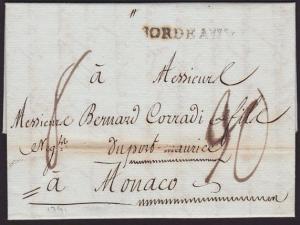 BORDEAUX
à Messieurs
Messieurs Bernard Corradi et fils
Negts
du port maurice
à Monaco